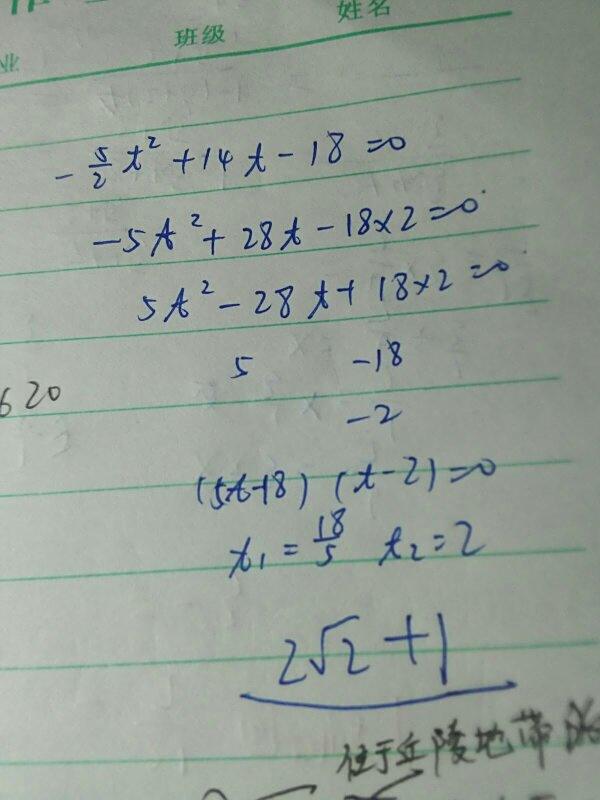 姓名
班级
业
-5/2 t² + 14t - 18 = 0
-5t² + 28t - 18×2 = 0
5t² - 28t + 18×2 = 0
5 -18
620
-2
(5t-18) (t-2) = 0
t₁ = 18/5 t₂ = 2
2√2 + 1
位于丘陵地带